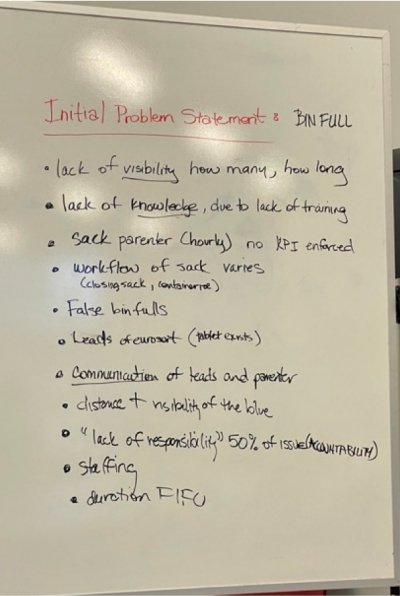 Initial Problem Statement: BIN FULL
• lack of visibility how many, how long
• lack of knowledge, due to lack of training
• sack parenter (hourly) no KPI enforced
• workflow of sack varies
(closing sack, containerize)
• False binfulls
• Leads of eurosort (tablet exists)
• Communication of leads and parenter
• distance + visibility of the blue
• "lack of responsibility" 50% of issue (ACCOUNTABILITY)
• staffing
• duration FIFO